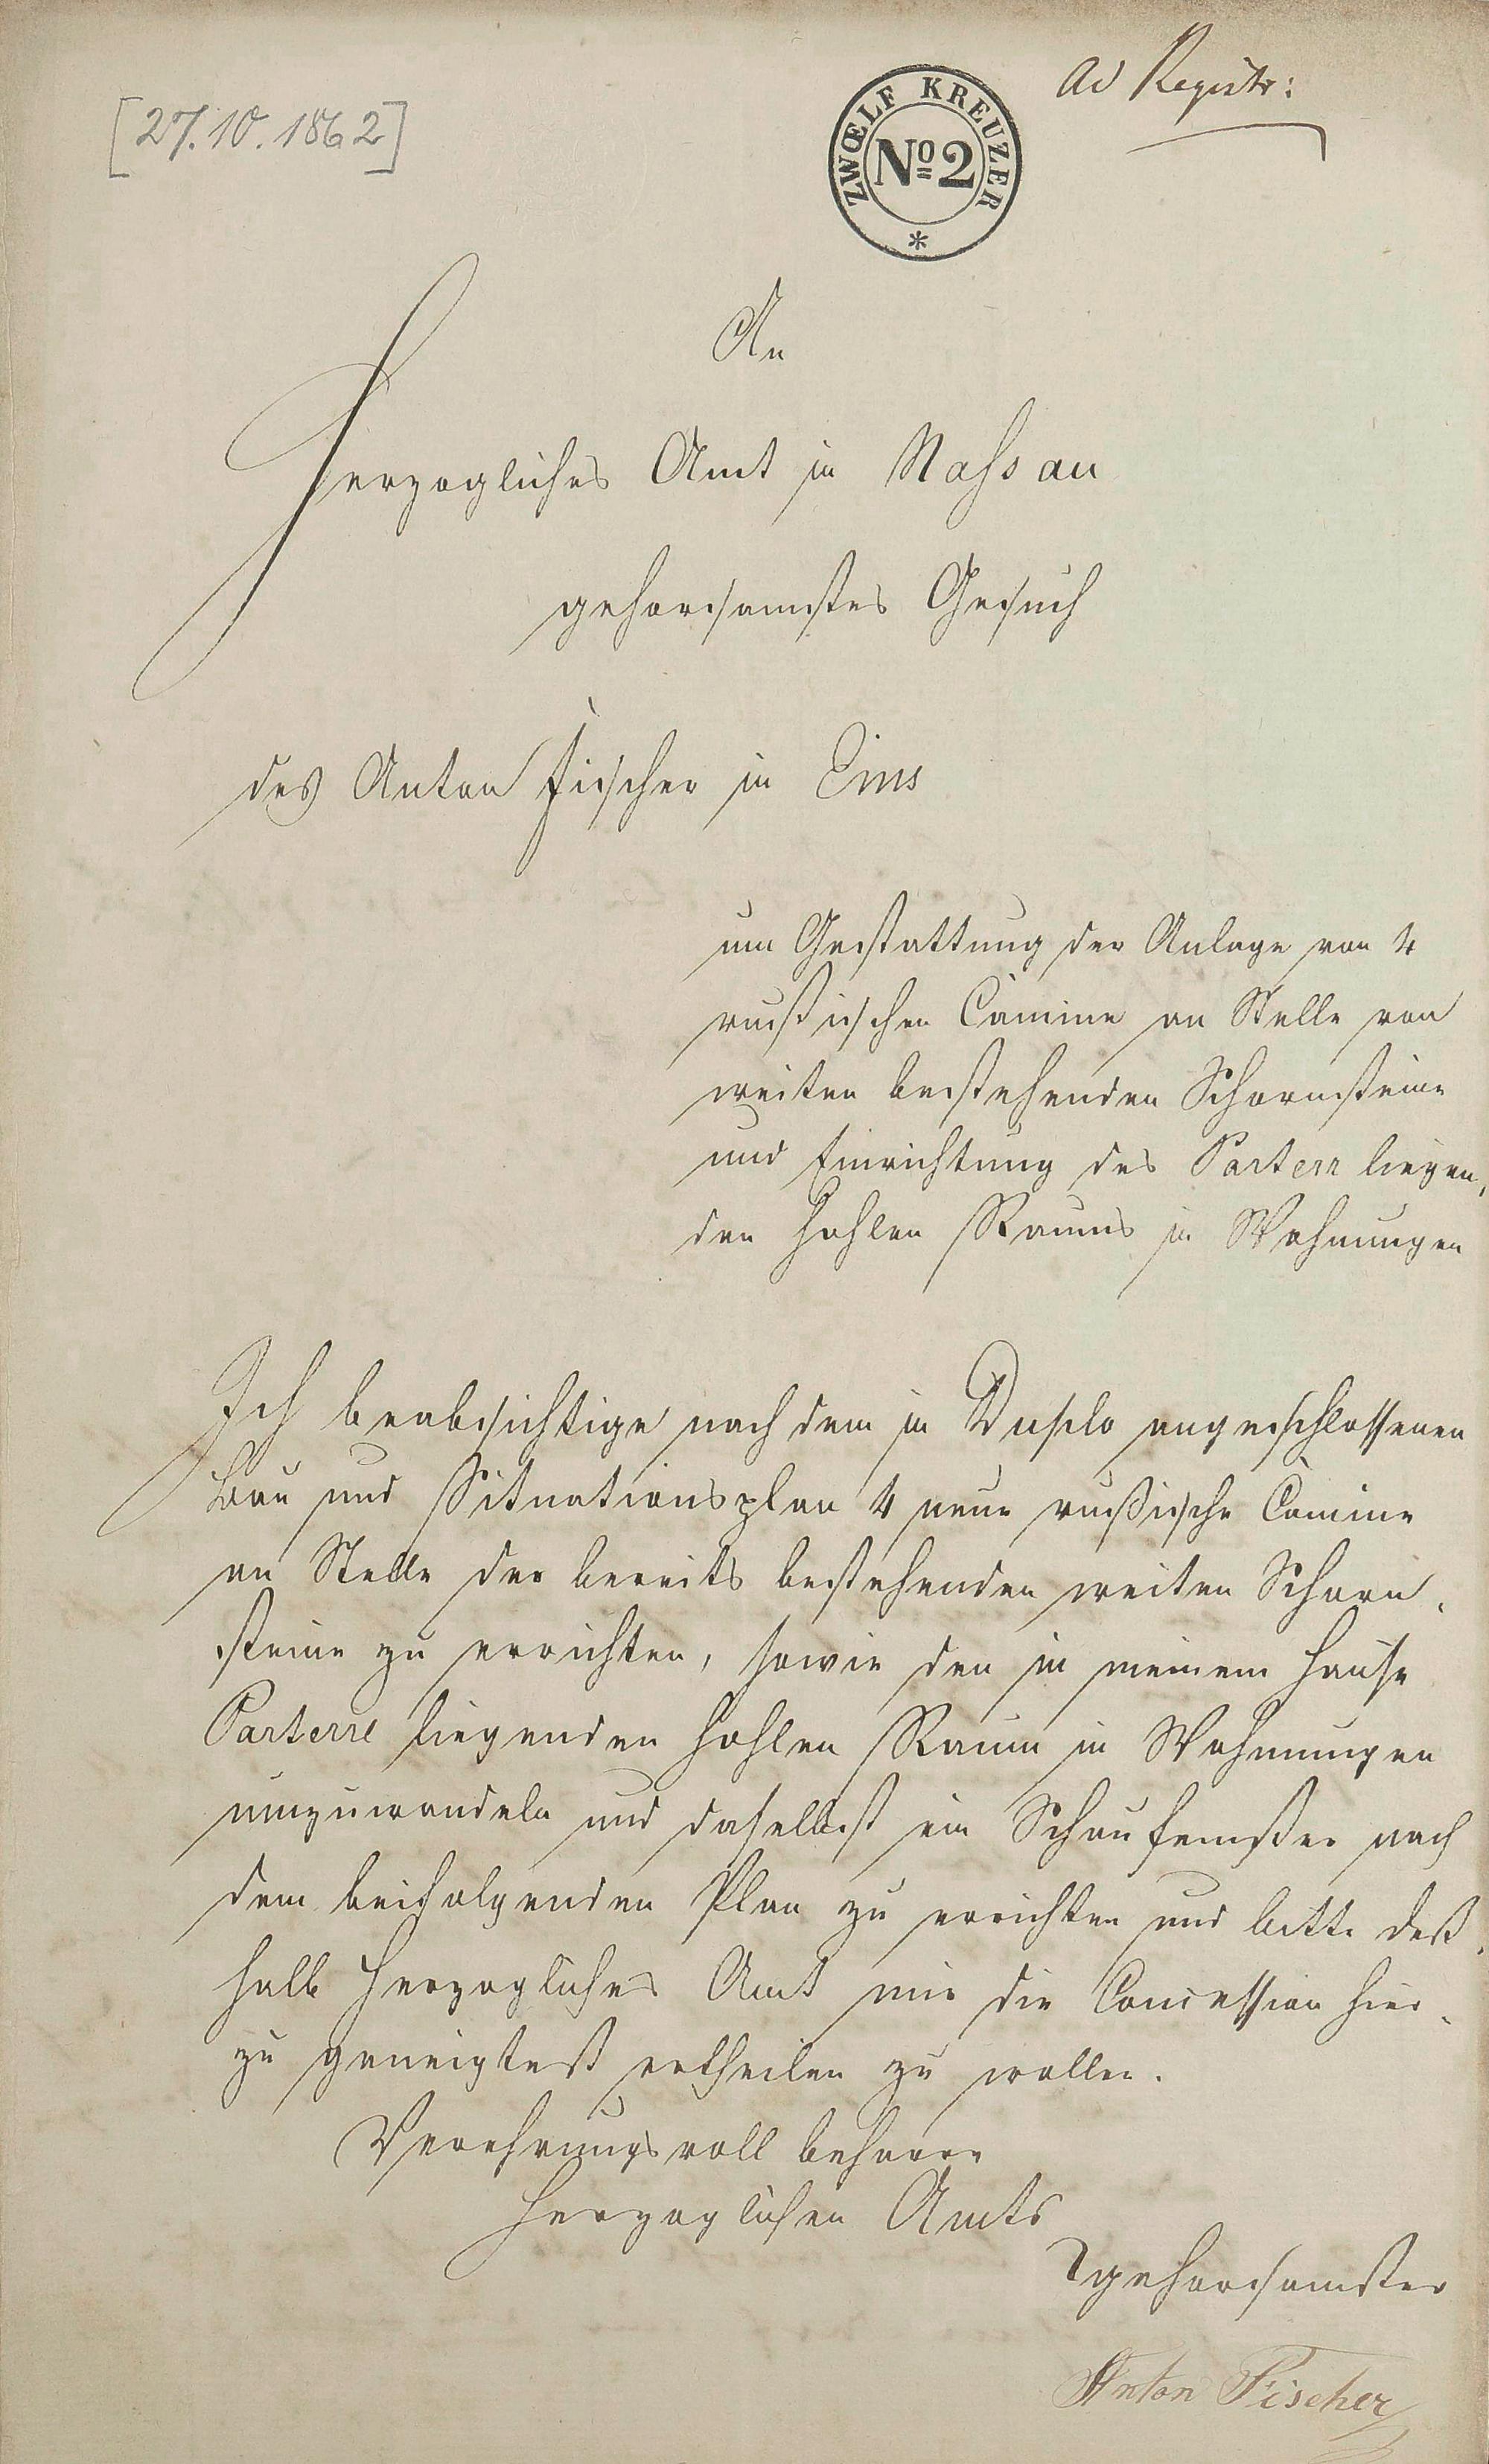 [27.10.1862]
ZWŒLF KREUZER
No 2
*
ad Registr:
An
Herzogliches Amt in Nassau
gehorsamstes Gesuch
des Anton Fischer in Ems
um Gestattung der Anlage von 4
russischen Camine an Stelle von
weiten bestehenden Schornsteine
und Einrichtung des Parterr liegen,
den hohlen Raums in Wohnungen
Ich beabsichtige nach dem in Duplo angeschlossenen
Bau und Situationsplan 4 neue russische Camine
an Stelle der bereits bestehenden weiten Schorn,
steine zu errichten, sowie den in meinem Hause
Parterre liegenden hohlen Raum in Wohnungen
umzuwandeln und daselbst ein Schaufenster nach
dem beifolgenden Plan zu errichten und bitte deß,
halb Herzogliches Amt mir die Concession hier,
zu geneigtest ertheilen zu wollen.
Verehrungsvoll beharre
Herzoglichen Amts
gehorsamster
Anton Fischer